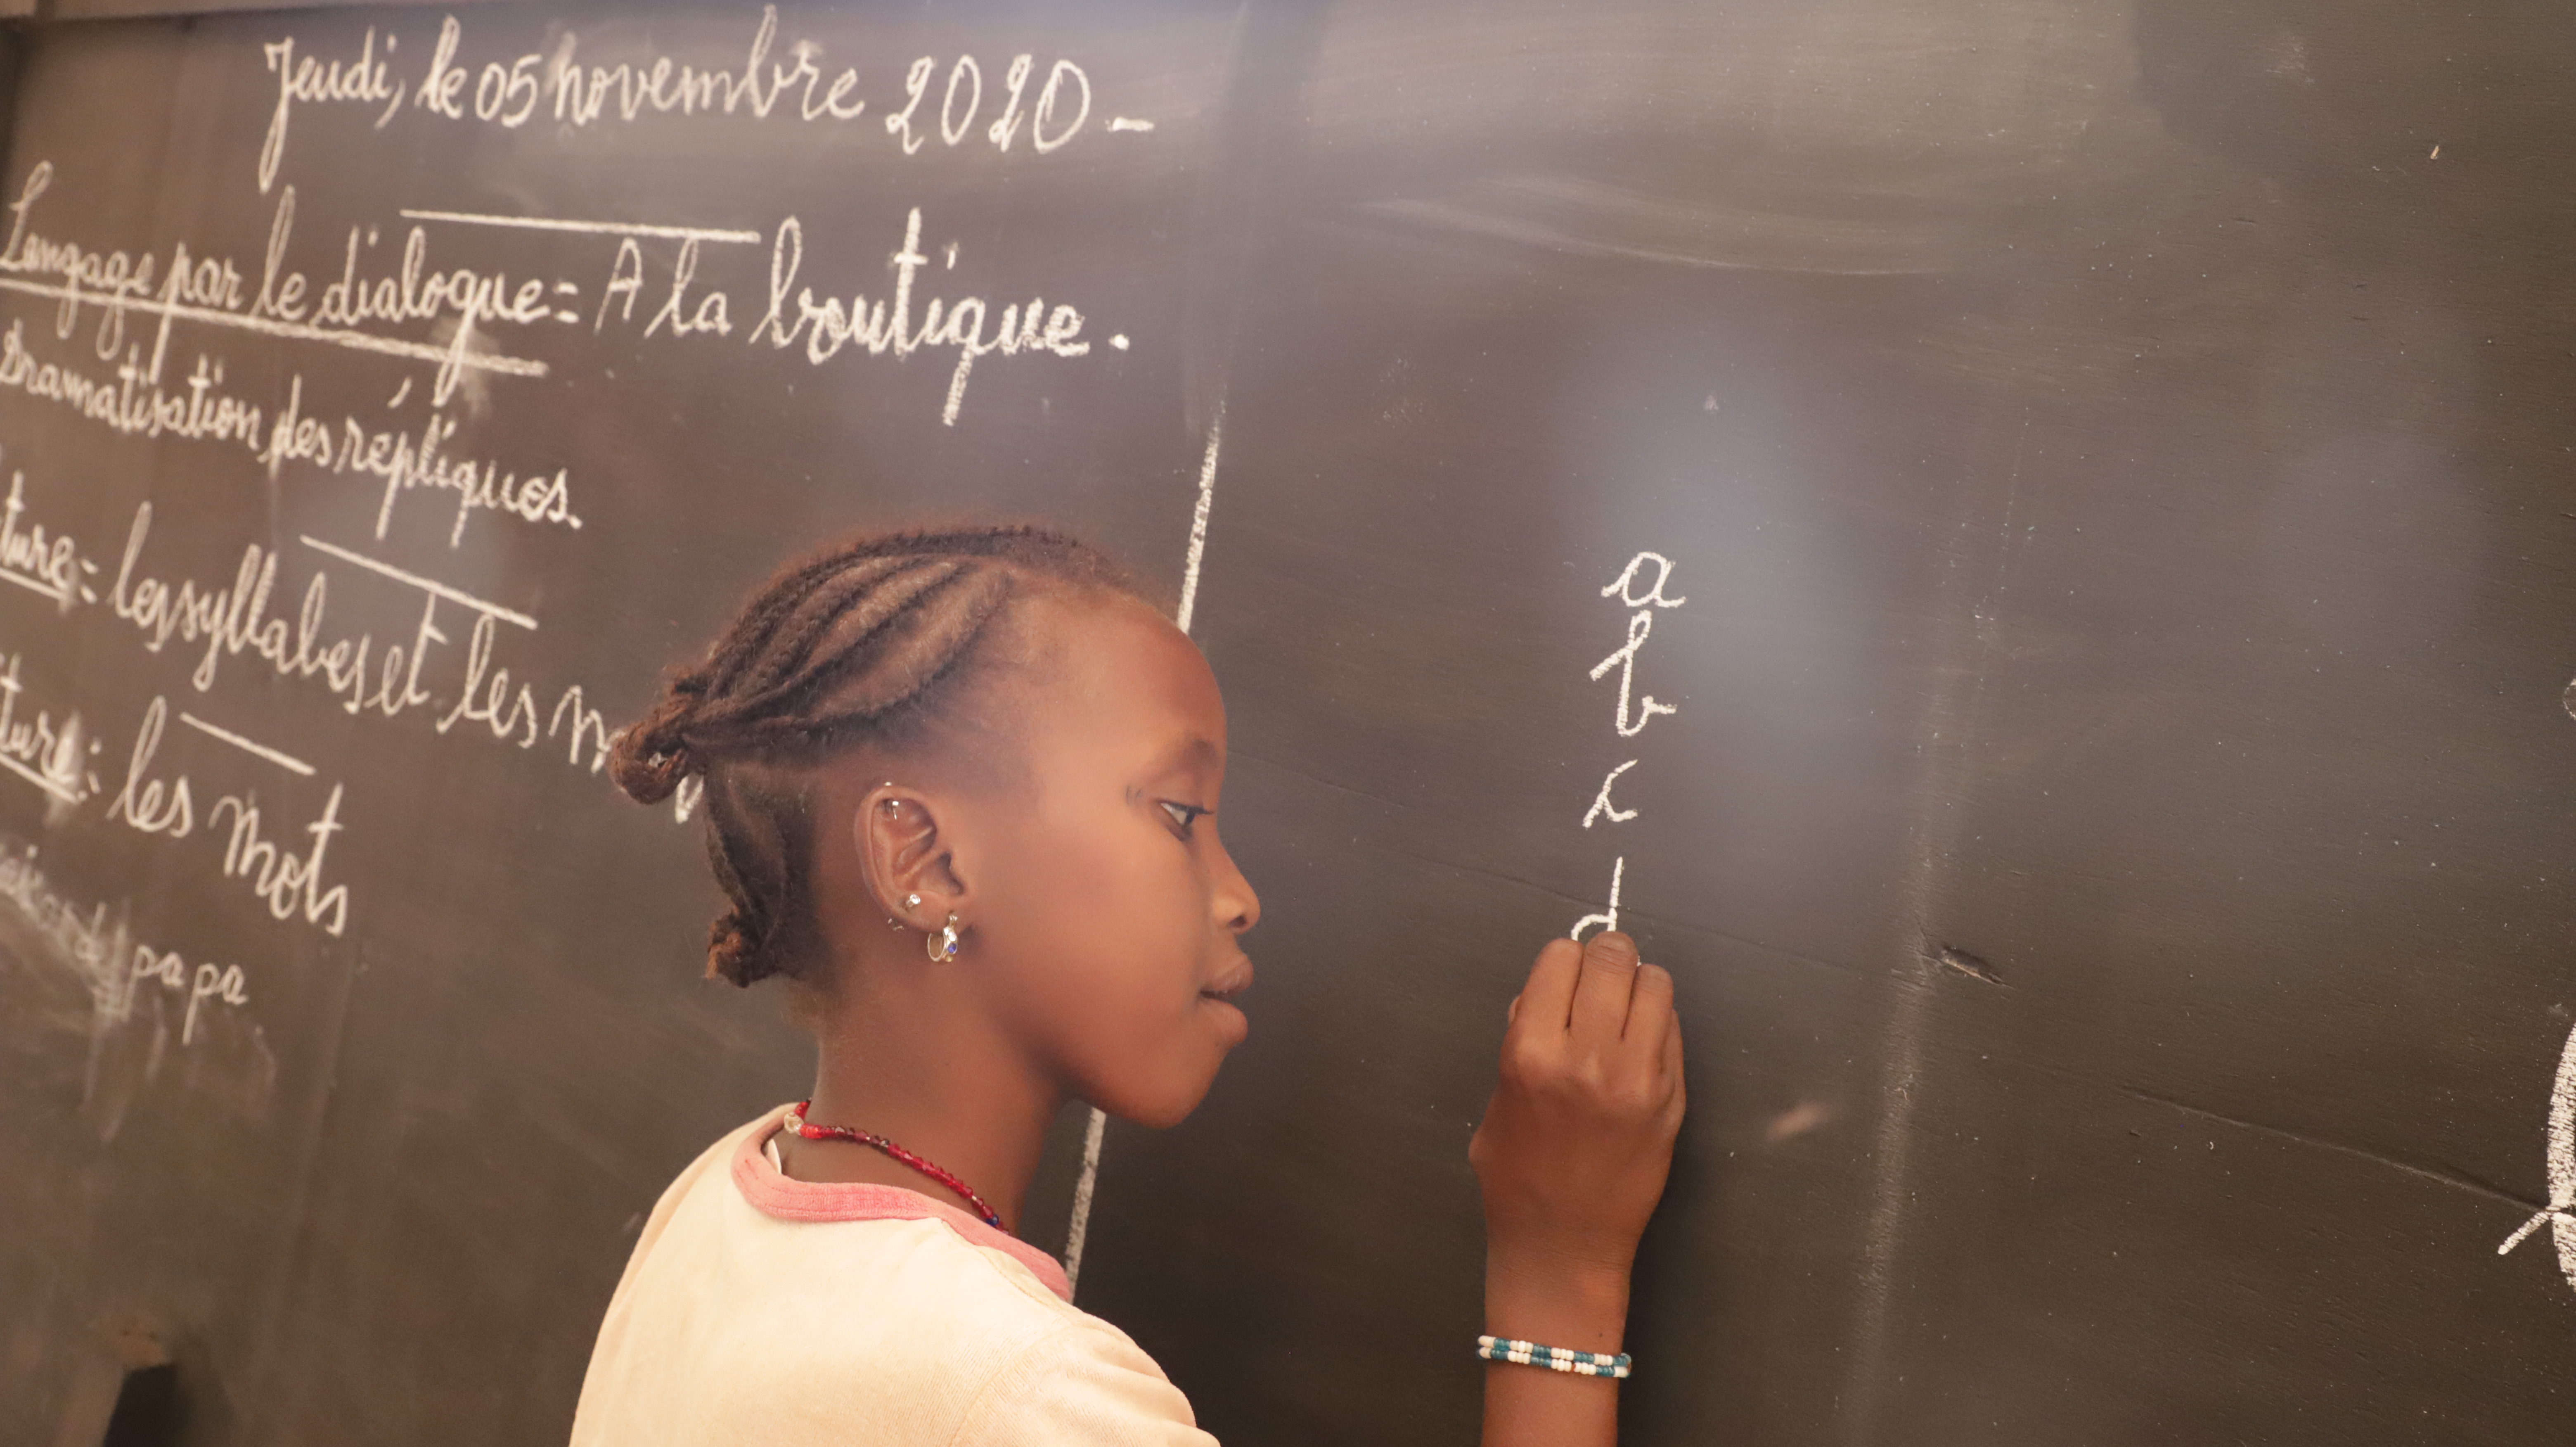 Jeudi, le 05 novembre 2020 -
Langage par le dialogue = A la boutique.
Dramatisation des répliques.
ture = les syllabes et les
ture : les mots
papa
a
b
c
d